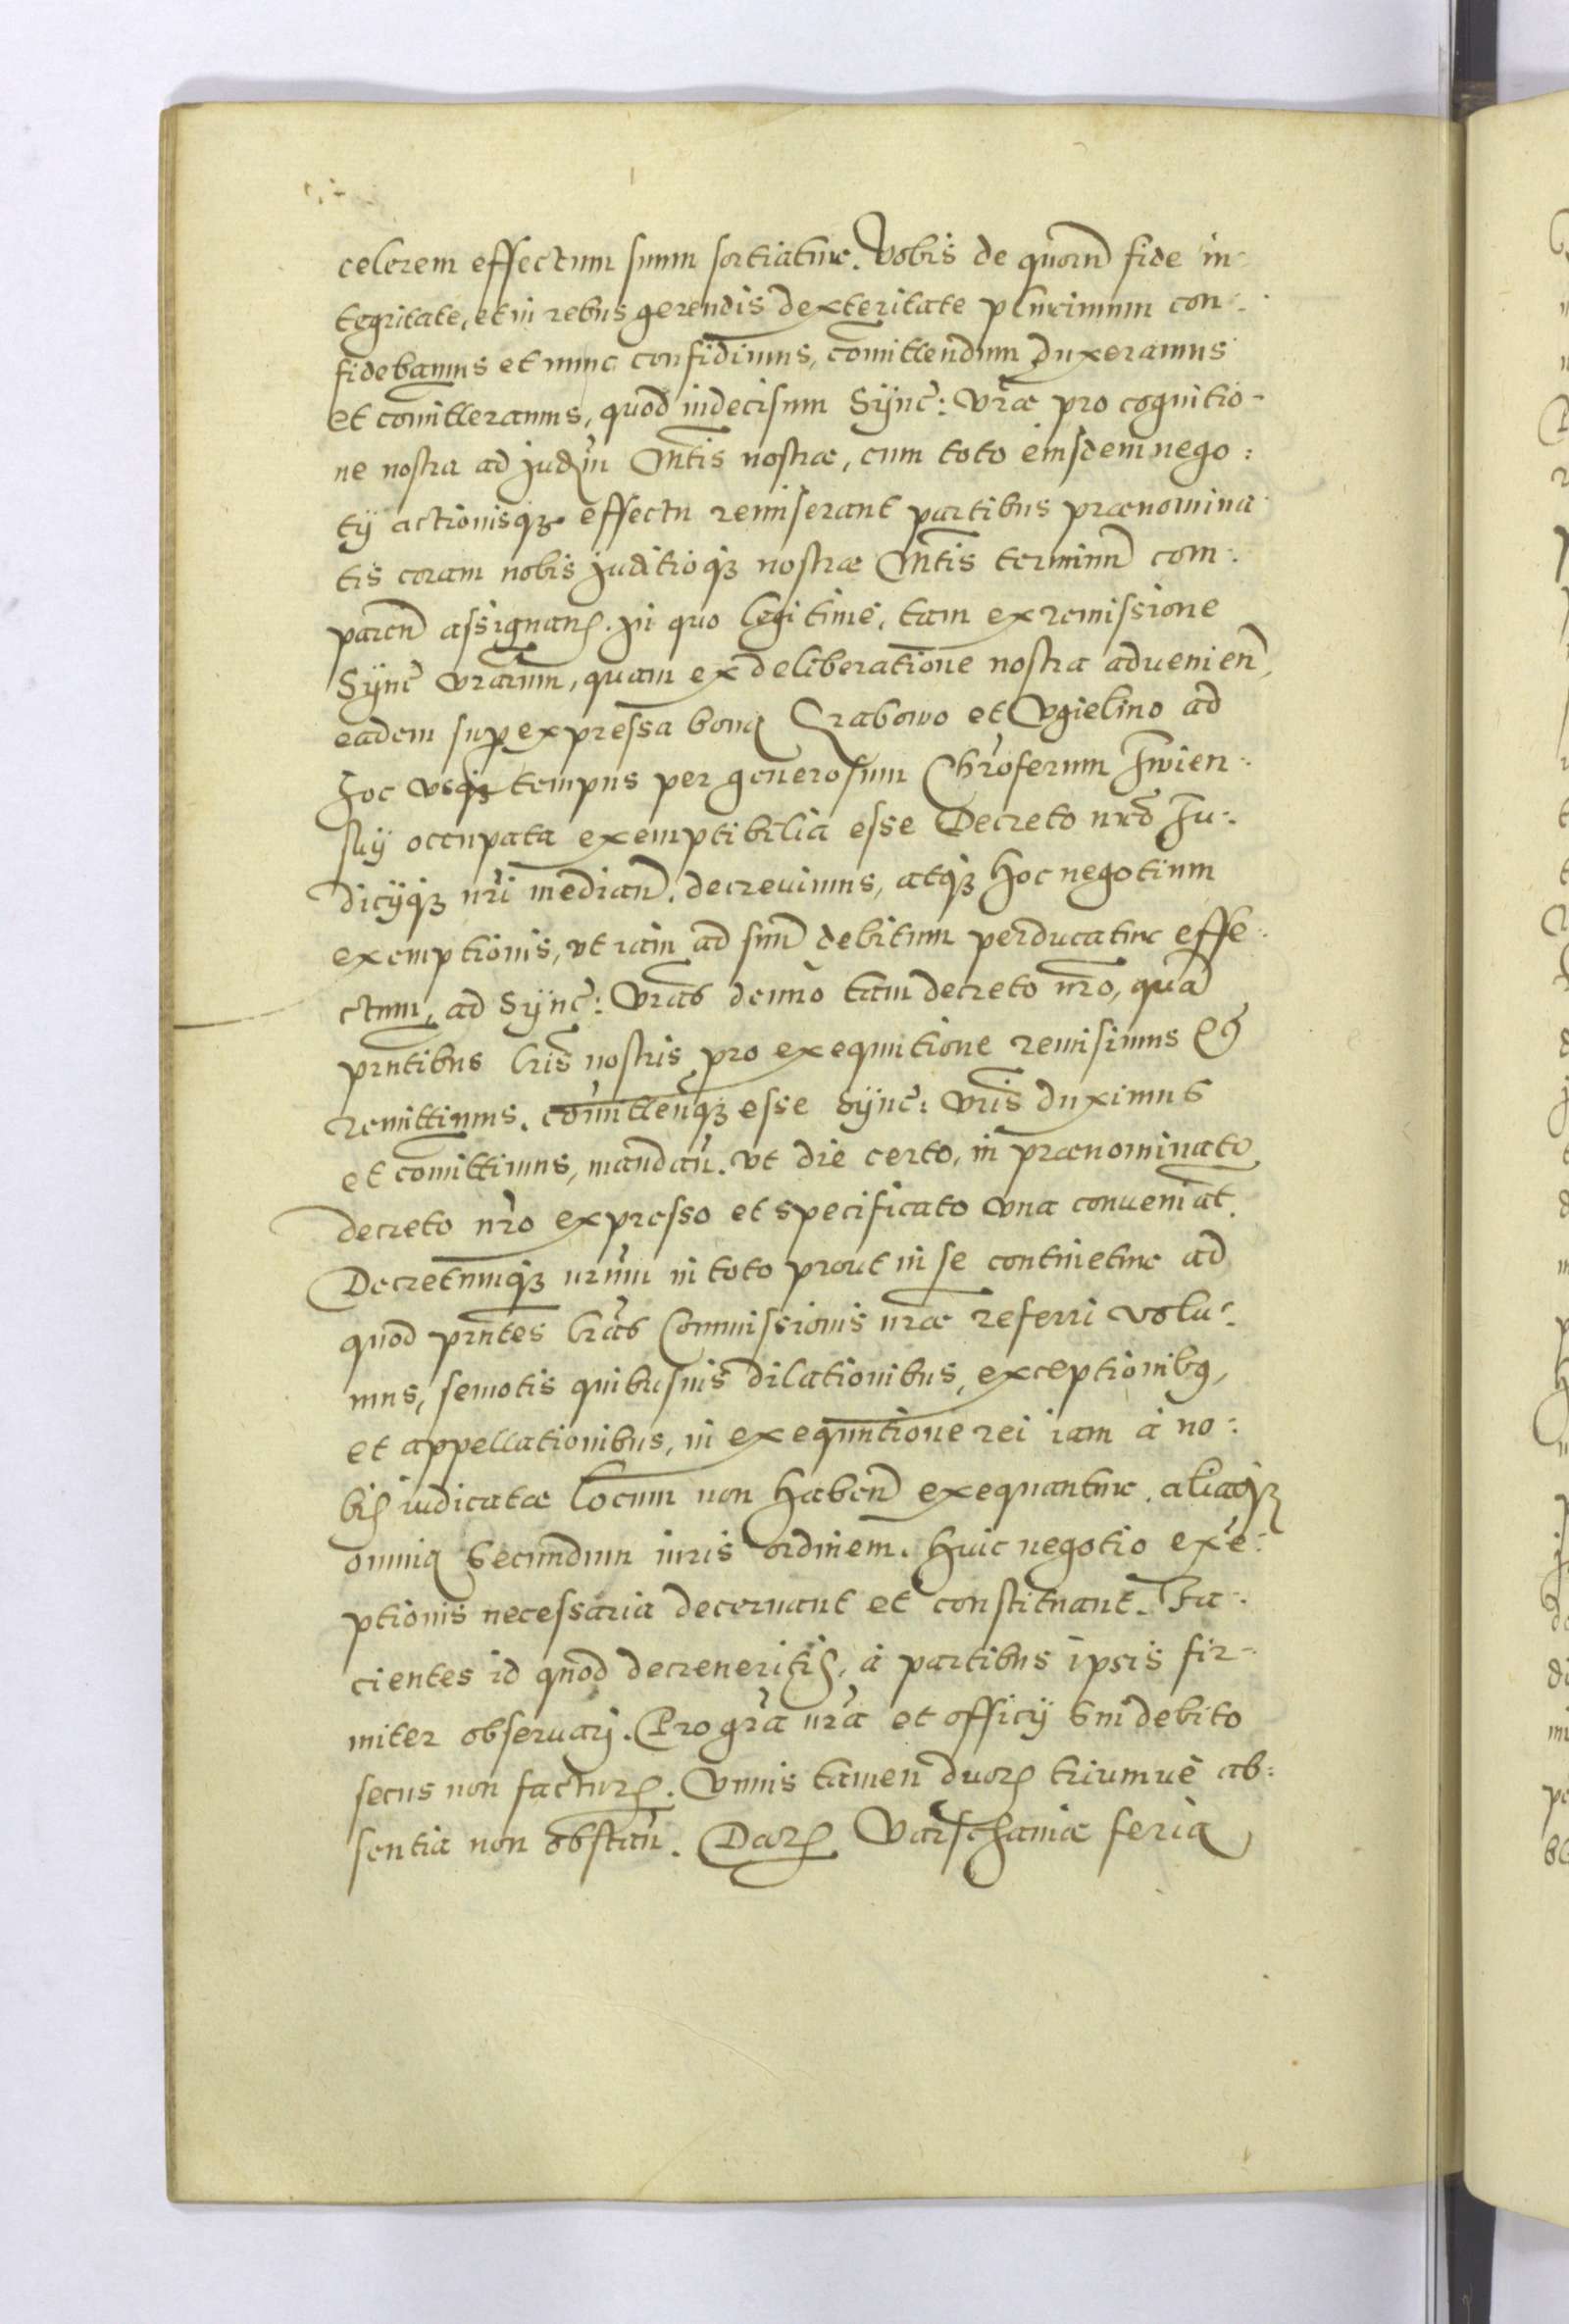 celerem effectum suum sortiatur. Vobis de quorũ fide in-
tegritate, et in rebus gerendis dexteritate plurimum con-
fidebamus et nunc confidimus, comittendum duxeramus
et comitteramus, quod indecisum Sÿnc: vrae pro cognitio-
ne nostra ad Judm Mtis nostrae, cum toto eiusdem nego:
tÿ actionisqȝ effectu remiserant partibus praenomina
tis coram nobis Juditioqȝ nostrae Mtis terminũ com:
parenđ assignanꝭ. In quo legitime, tam ex remissione
Sÿnc vrarum, quam ex deliberatione nostra aduenienđ,
eadem sup expressa bona Grabowo et Vgielino ad
hoc vsqȝ tempus per generosum Chroferum Iwien:
sky occupata exemptibilia esse Decreto nrõ Iu:
dicÿqȝ nri mediañ. decreuimus, atqȝ hoc negotium
exemptionis, vt iam ad suũ debitum perducatur effe:
ctum, ad Sÿnc: vras denuo tam decreto nro, quã
prntibus lris nostris pro exequutione remisimus Eꝭ
remittimus. cõmittenqȝ esse Sÿnc: vris duximus
et comittimus, mandañ. vt die certo, in praenominato
decreto nro expresso et specificato vna conueniãt.
Decretumqȝ nrum in toto prout in se continetur ad
quod prntes lras Commissionis nrae referri volu:
mus, semotis quibusuis dilationibus, exceptionibꝰ,
et appellationibus, in exequutione rei iam à no:
bis iudicatae locum non habenđ exequantur. aliaqȝ
omnia Secundum iuris ordinem. huic negotio exẽ:
ptionis necessaria decernant et constituant. Fa:
cientes id quod decreueritis, à partibus ipsis fir:
miter obseruari. Pro gra nra et officÿ sui debito
secus non facturꝭ. Vnius tamen duorꝭ triumue ab:
sentia non obstañ. Datꝭ Varschaniae feria